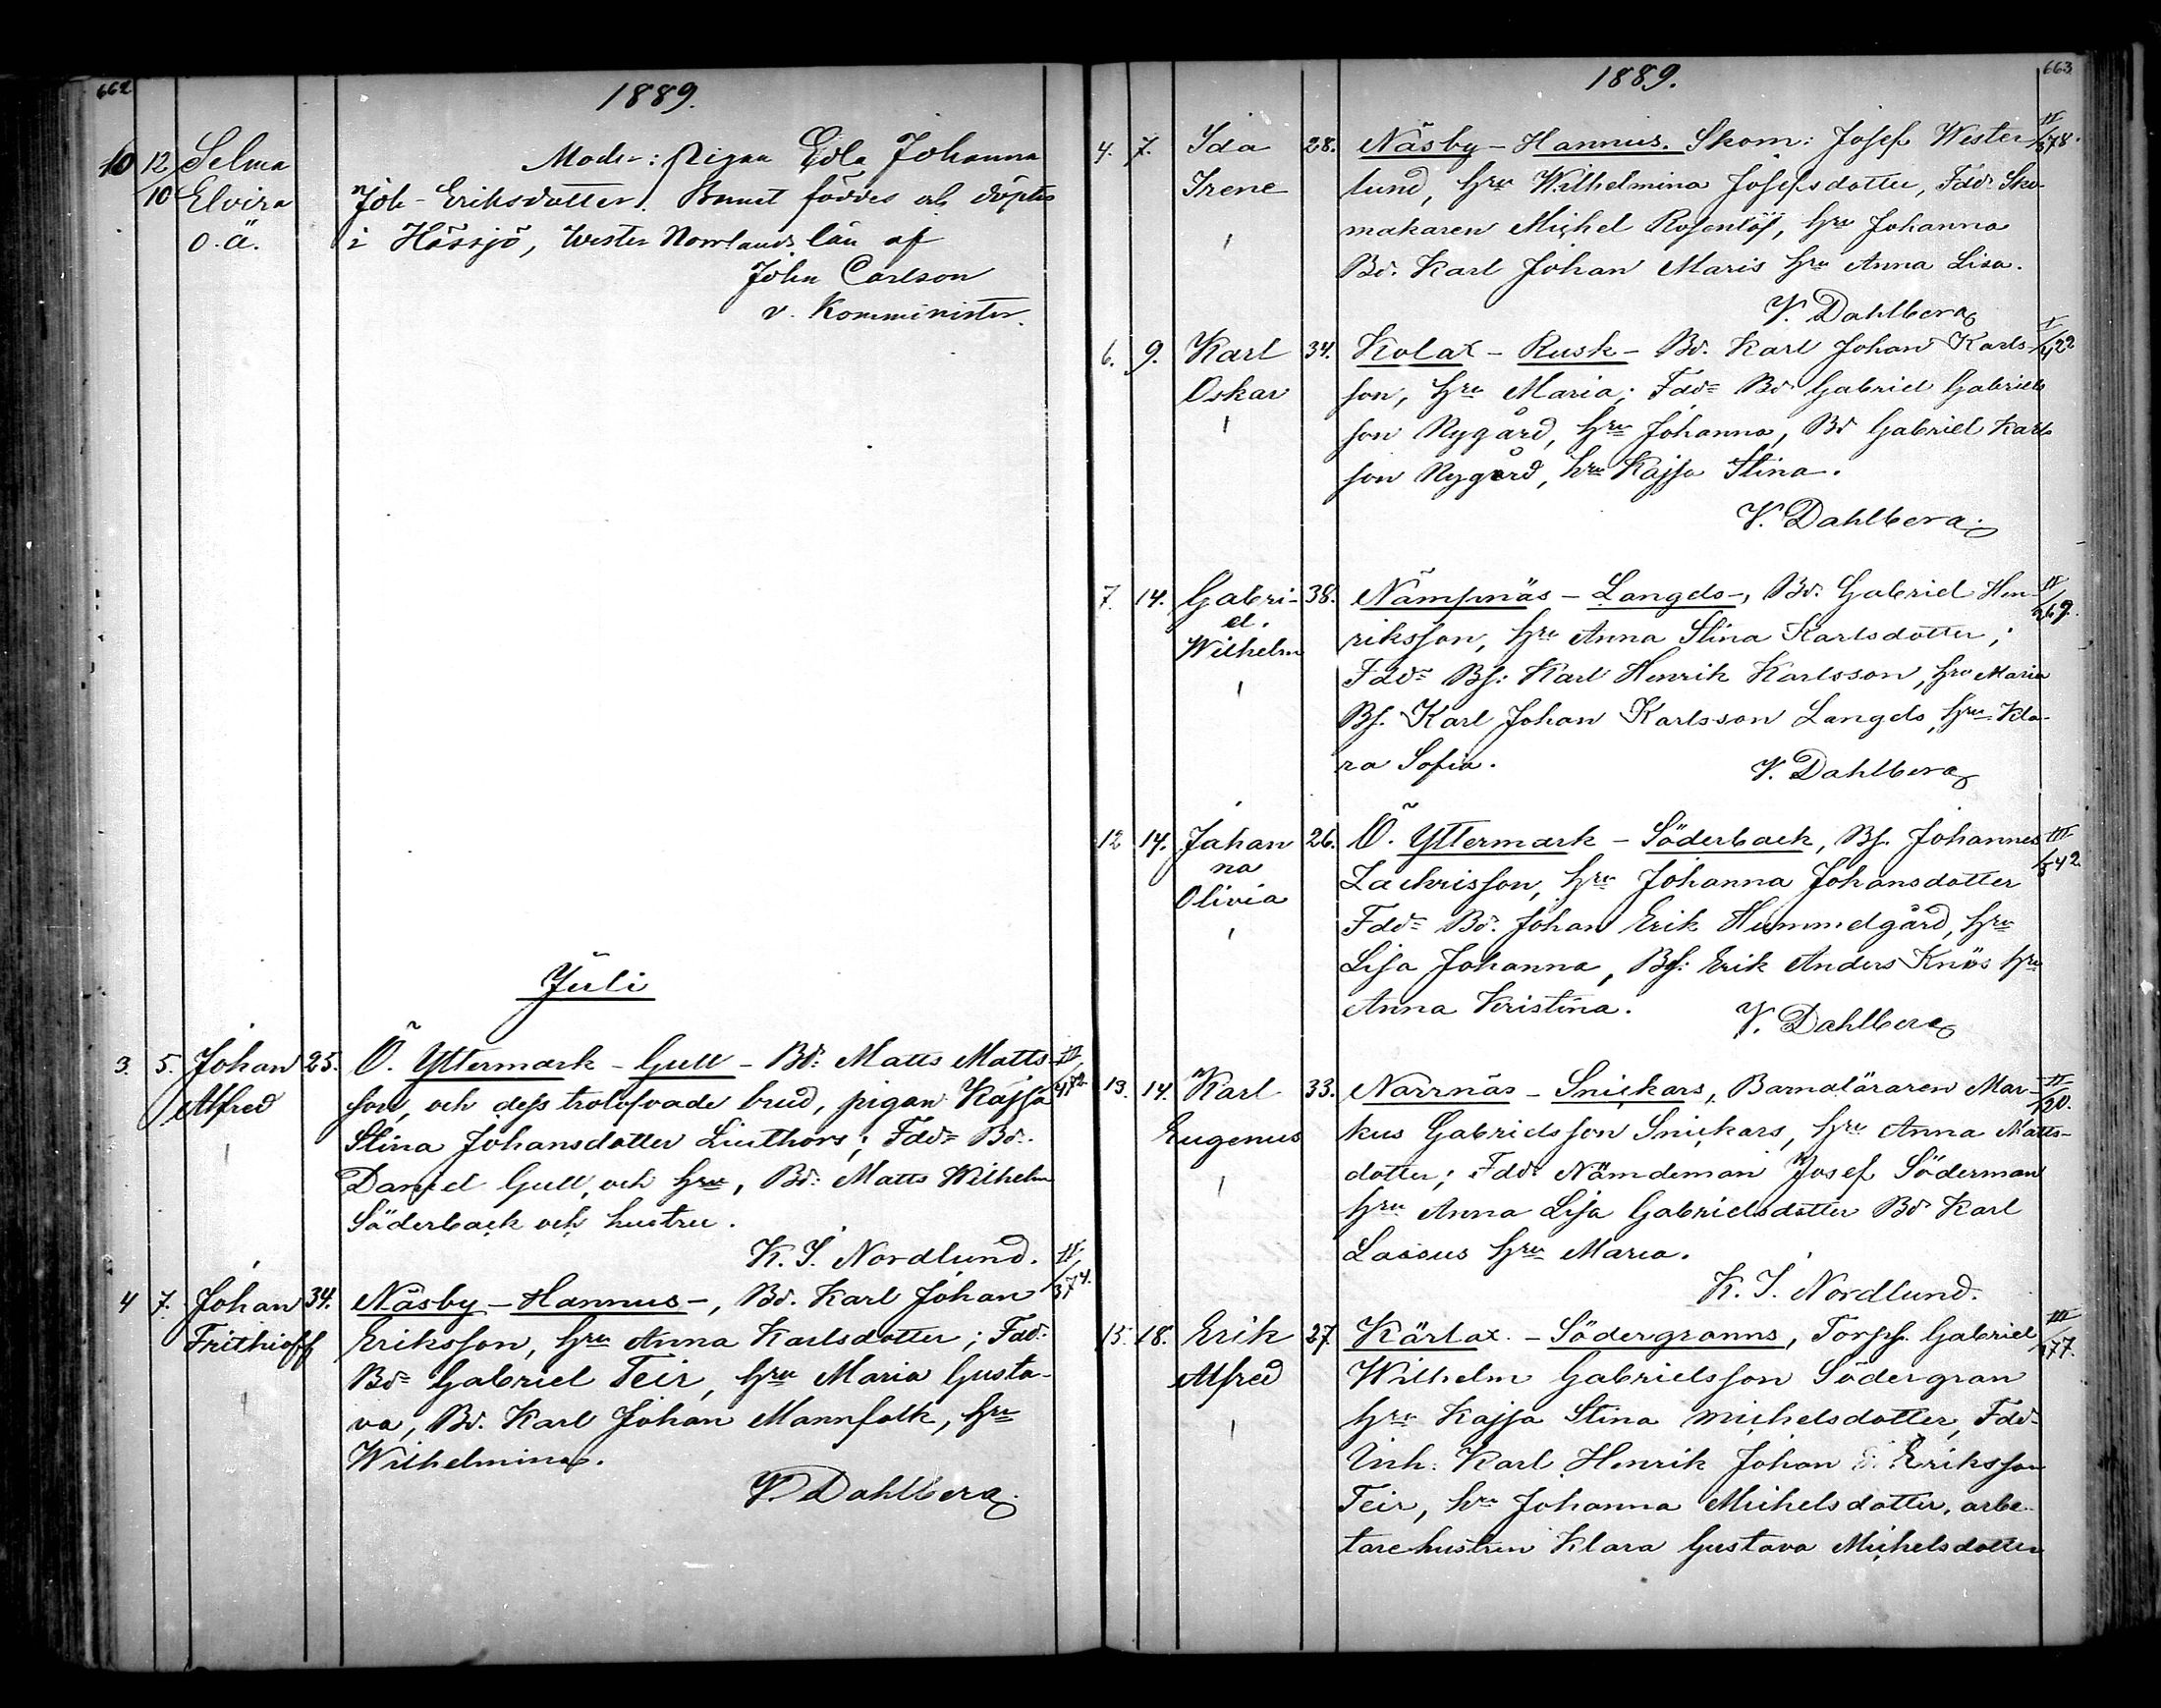 662
1889.
10 12/10 Selma Elvira o.ä.
Moder: Pigan Edla Johanna
Joh-Eriksdotter. Barnet föddes och döptes
i Hässjö, Wester Norrlands län af
John Carlson
v. Komminister.
Juli
3. 5. Johan Alfred 25.
Ö. Yttermark - Gull - Bd: Matts Matts-
son, och dess trolofvade brud, pigan Kajsa
Stina Johansdotter Linthors; Fdd= Bd:
Daniel Gull, och hru, Bd: Matts Wilhelm
Söderback och hustru.
K. I. Nordlund.
4 7. Johan Frithioff 34.
Näsby - Hannus -, Bd. Karl Johan
IV/374.
Eriksson, hru Anna Karlsdotter; Fdd:
Bd= Gabriel Teir, hru Maria Gusta-
va, Bd. Karl Johan Mannfolk, hru
Wilhelmina.
V. Dahlberg
663
1889.
4. 7. Ida Irene 28.
Näsby - Hannus. Skom: Josef Wester-
IV/378.
lund, hru Wilhelmina Josefsdotter, Fdd: Sko-
makaren Michel Rosenlöf, hru Johanna
Bd. Karl Johan Maris hru Anna Lisa.
V. Dahlberg
6. 9. Karl Oskar 34.
Kolax - Rusk - Bd. Karl Johan Karls-
son, hru Maria; Fdd= Bd Gabriel Gabriels
son Nygård, hru Johanna, Bd Gabriel Karls
son Nygård, hru Kajsa Stina.
V. Dahlberg
7. 14. Gabriel. Wilhelm 38.
Nämpnäs - Langels -, Bd. Gabriel Hen-
riksson, hru Anna Stina Karlsdotter;
Fdd= Bs: Karl Henrik Karlsson, hru Maria
Bs. Karl Johan Karlsson Langels, hru Kla-
ra Sofia.
V. Dahlberg
12 14. Johanna Olivia 26.
Ö. Yttermark - Söderback, Bs. Johannes
III/342
Zachrisson, hru Johanna Johansdotter
Fdd= Bd. Johan Erik Hummelgård, hru
Lisa Johanna, Bs: Erik Anders Knös hru
Anna Kristina.
V. Dahlberg
13. 14. Karl Eugenus 33.
Narrnäs - Snickars, Barnaläraren Mar-
kus Gabrielsson Snickars, hru Anna Matts-
dotter; Fdd: Nämdeman Josef Söderman
hru Anna Lisa Gabrielsdotter Bd Karl
Lassus hru Maria.
K. I. Nordlund.
15. 18. Erik Alfred 27.
Kärlax. - Södergranns, Torps. Gabriel
Wilhelm Gabrielsson Södergran
hru Kajsa Stina Michelsdotter, Fdd-
Inh: Karl Henrik Johan Eriksson
Teir, hru Johanna Michelsdotter, arbe-
tarehustrun Klara Gustava Michelsdotter